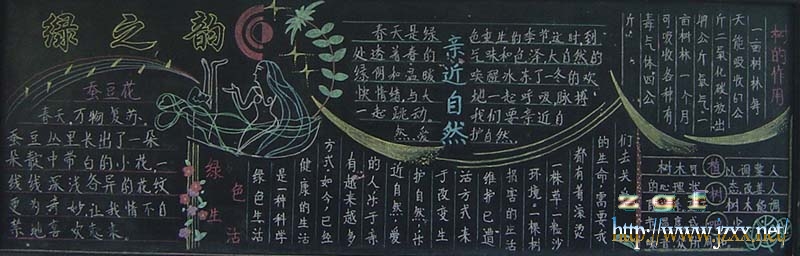 绿之韵
蚕豆花
春天,万物复苏。
蚕豆丛里长出了一朵
朵紫中带白的小花,一
线线深浅各异的花纹
更为奇妙,让我情不自
禁地喜欢起来。
绿色生活
绿色生活
是一种科学
健康的生活
方式,如今,已经
有越来越多
的人乐于亲
近自然,爱
护自然,乐
于改变生
活方式来
维护已遭
损害的生活
环境。一棵树
一株草一粒沙
都有着滚烫
的生命,需要我
们去关
亲近自然
春天是绿
处透着春的
绿倒和温暖
快情情,与大
一起跳动。
然,爱
色重生的季节这时,到
气味和色泽,大自然的
唤醒冰冻了一冬的欢
地一起呼吸,脉搏
我们要亲近自
护自然。
树的作用
一亩树林,每
天能吸收67公
斤二氧化碳放出
49公斤氧气,一
亩树林一个月
可吸收各种有
毒气体四公
斤。
植树
树木可以调整人
的心理
态改善人
树木能调
zgf
http://www.yzxx.net/